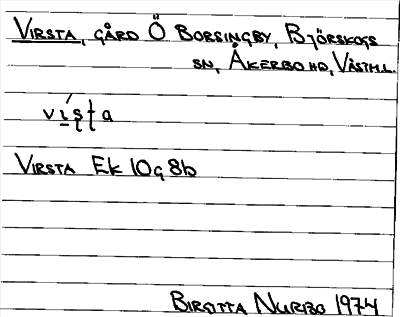 VIRSTA, GÅRD Ö BORSINGBY, BJÖRSKOGS
SN, ÅKERBO HD, VÄSTML.
vı̲́ʂʈa
VIRSTA EK 10g 8b
BIRGITTA NURBO 1974